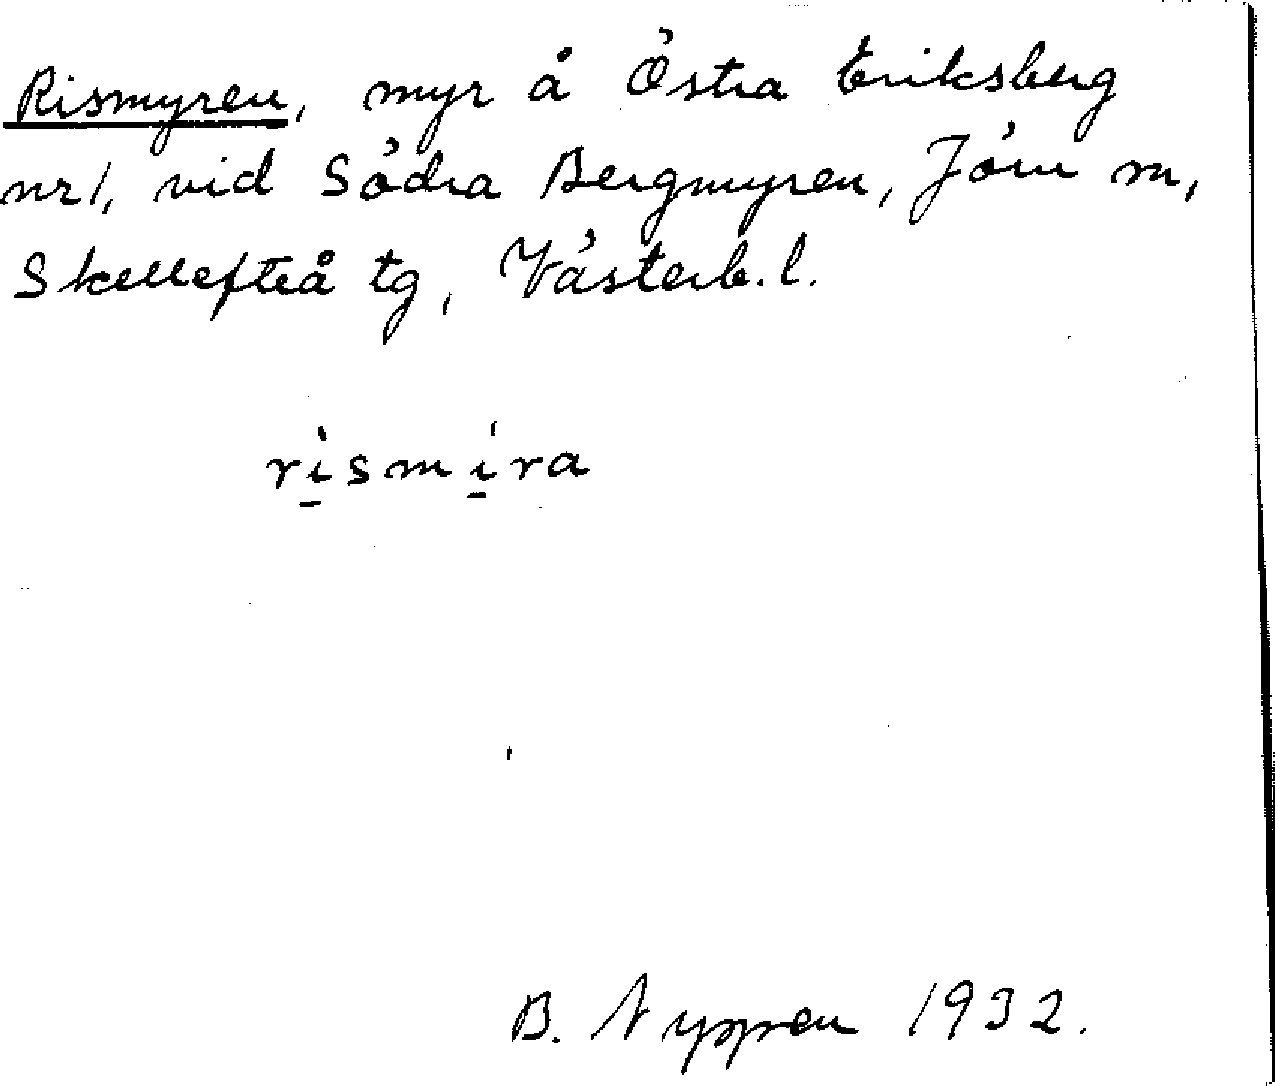 Rismyren, myr å Östra Eriksberg
nr 1, vid Södra Bergmyren, Jörn sn,
Skellefteå tg, Västerb. l.
ri̱smi̱ra
B. Nyppen 1932.